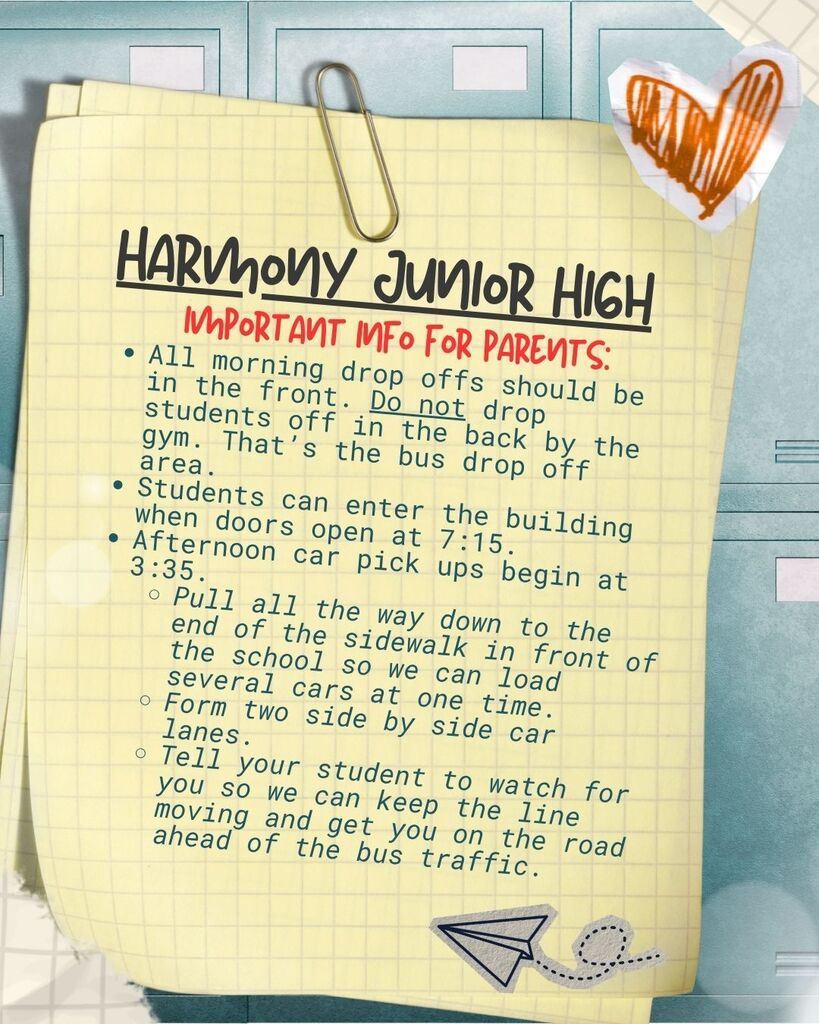 HARMONY JUNIOR HIGH
IMPORTANT INFO FOR PARENTS:
• All morning drop offs should be
in the front. Do not drop
students off in the back by the
gym. That's the bus drop off
area.
• Students can enter the building
when doors open at 7:15.
• Afternoon car pick ups begin at
3:35.
○ Pull all the way down to the
end of the sidewalk in front of
the school so we can load
several cars at one time.
○ Form two side by side car
lanes.
○ Tell your student to watch for
you so we can keep the line
moving and get you on the road
ahead of the bus traffic.